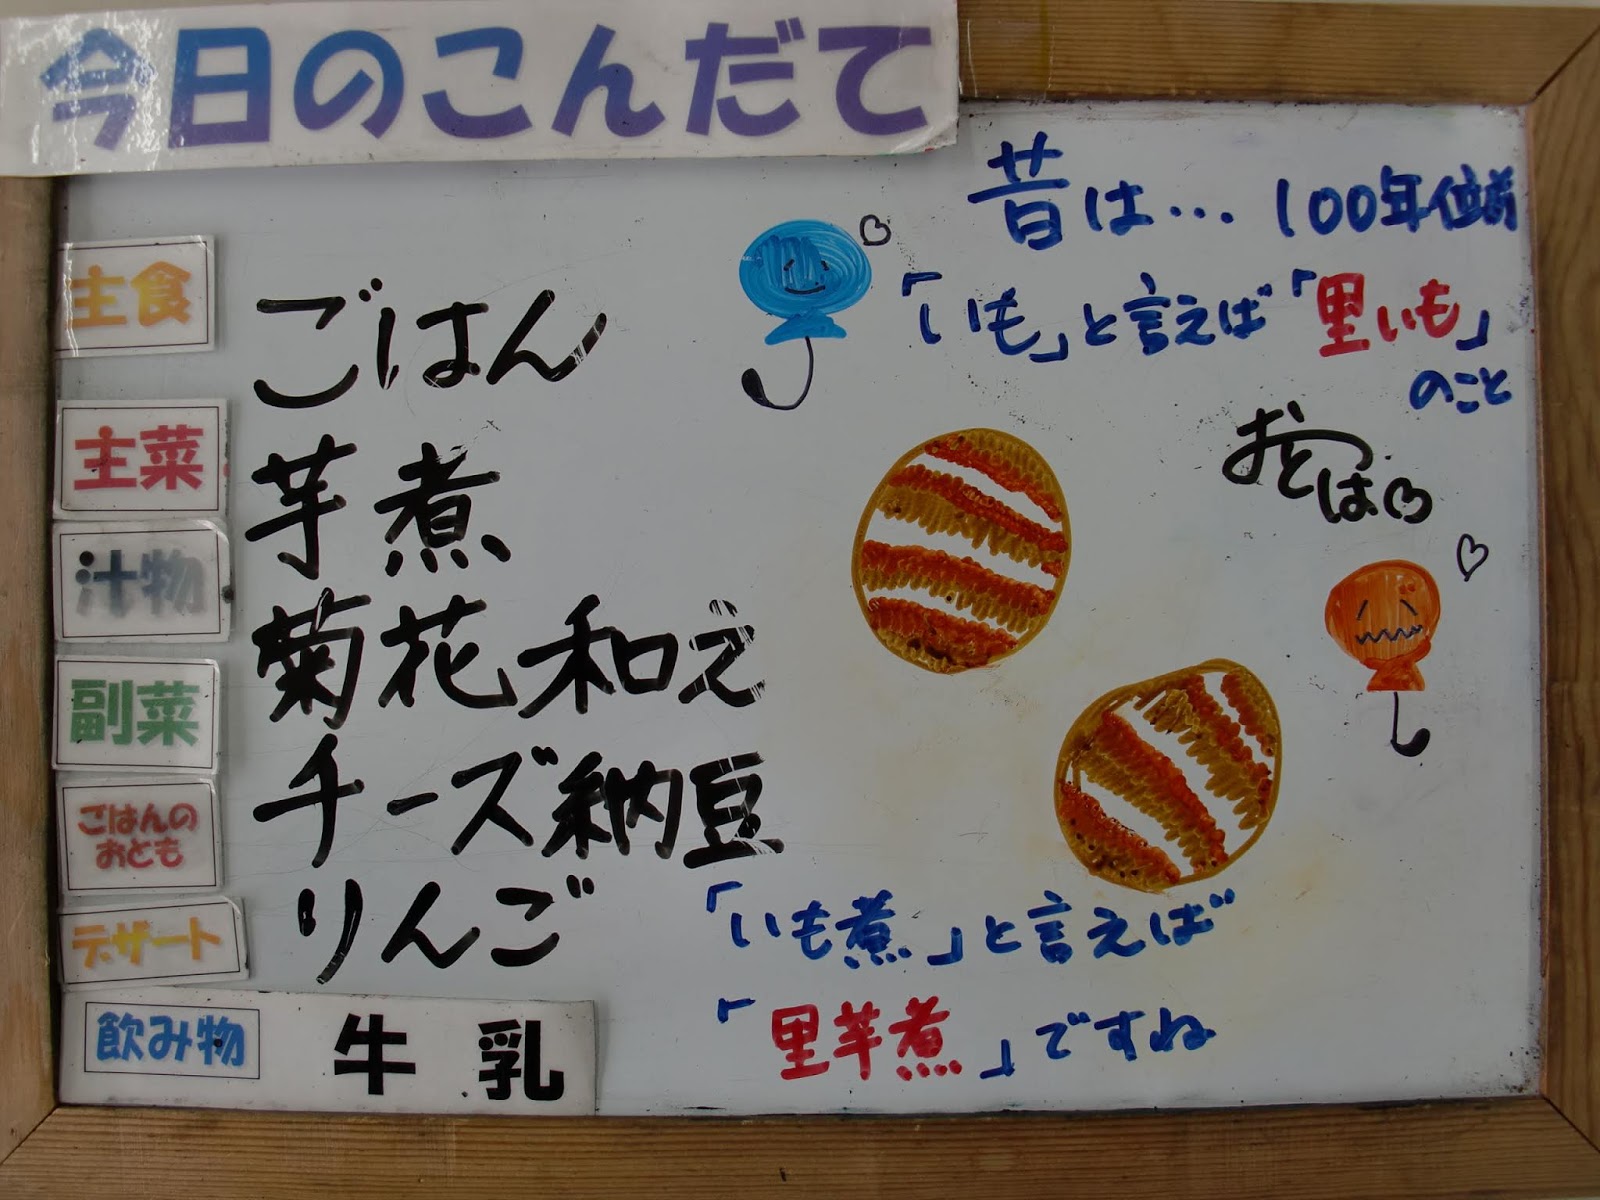 今日のこんだて
主食
ごはん
主菜
芋煮
汁物
副菜
菊花和え
ごはんの
おとも
チーズ納豆
デザート
りんご
飲み物
牛乳
昔は… 100年位前
「いも」と言えば「里いも」
のこと
「いも煮」と言えば
「里芋煮」ですね